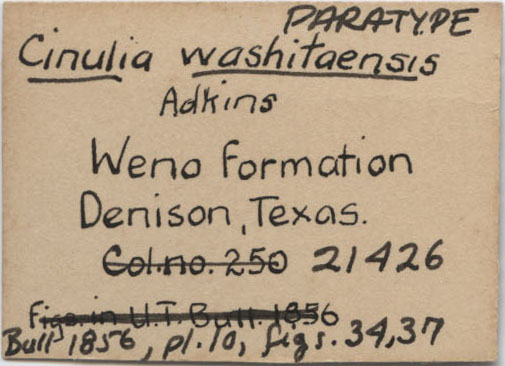 PARATYPE
Cinulia washitaensis
Adkins
Weno Formation
Denison, Texas.
Col. no. 250 21426
Figs. in U.T. Bull. 1856
Bull 1856, pl. 10, figs. 34,37